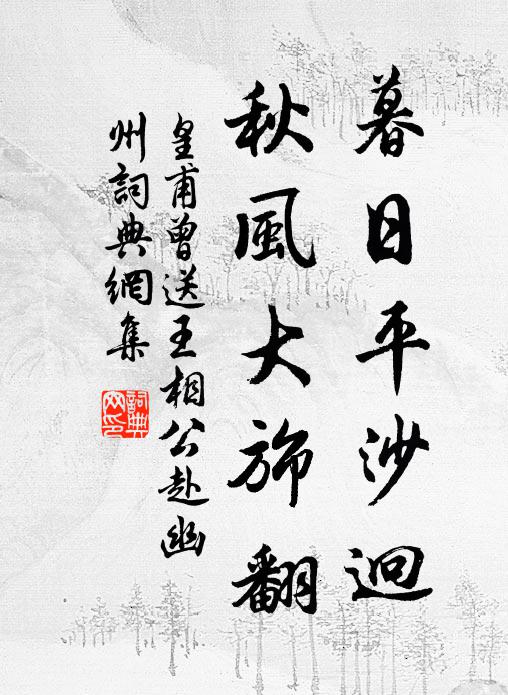 暮日平沙迥
秋風大旆翻
皇甫曾送王相公赴幽
州詞典網集
詞典
网印